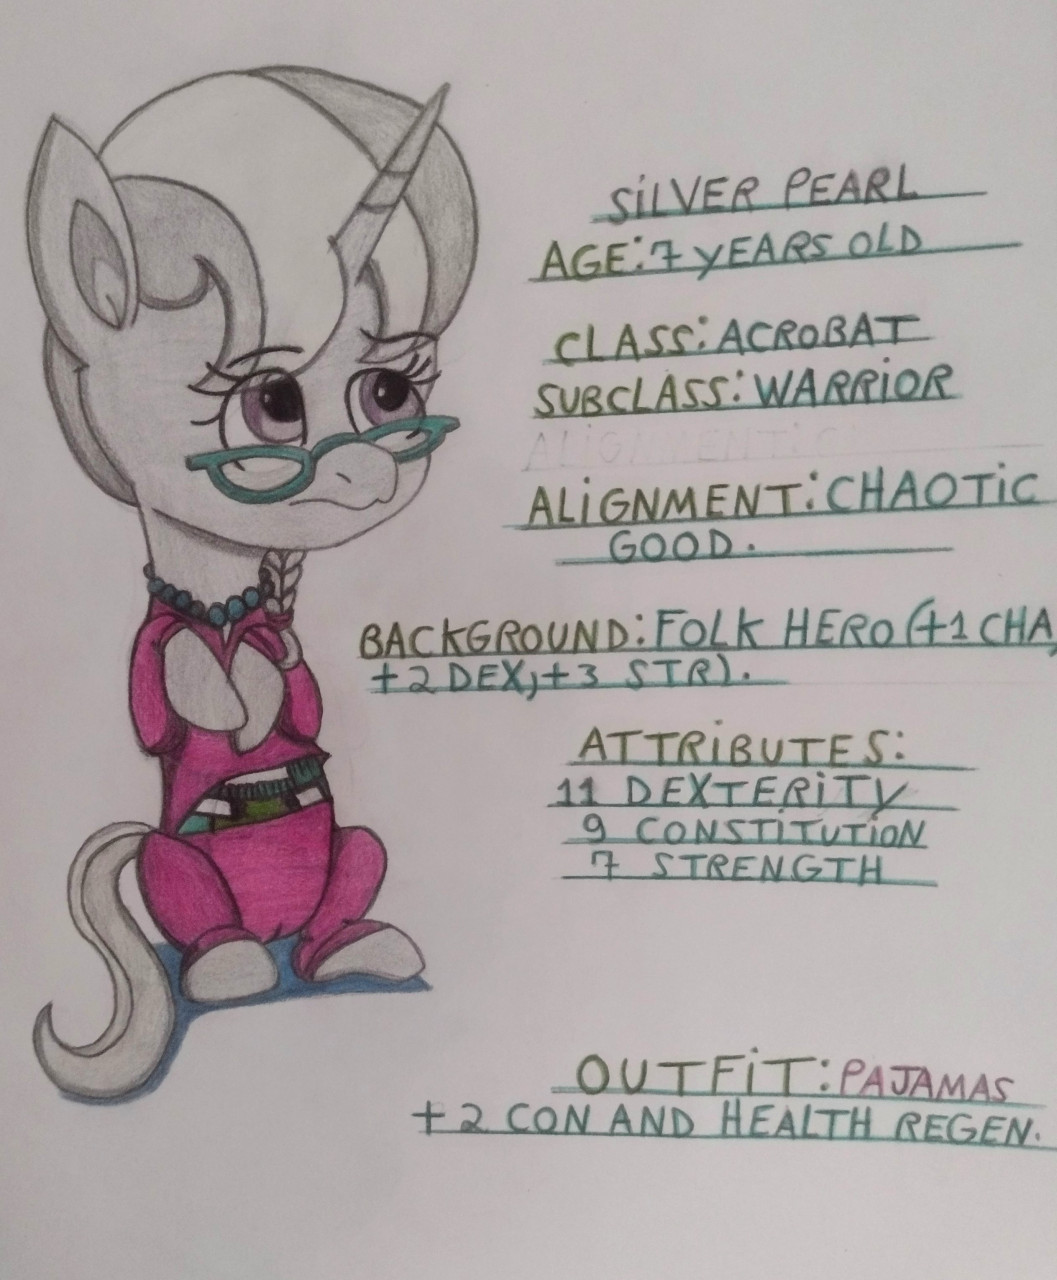 SiLVER PEARL
AGE:7 YEARS OLD
CLASS:ACROBAT
SUBCLASS:WARRiOR
ALiGNMENT:CHAOTiC
ALiGNMENT:CHAOTiC
GOOD.
BACKGROUND:FOLK HERO(+1 CHA,
+2 DEX,+3 STR).
ATTRiBUTES:
11 DEXTERiTY
9 CONSTiTUTiON
7 STRENGTH
OUTFiT:PAJAMAS
+2 CON AND HEALTH REGEN.